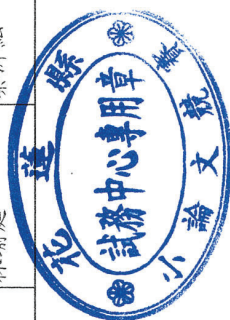 花蓮縣
試務中心專用章
小論文競賽